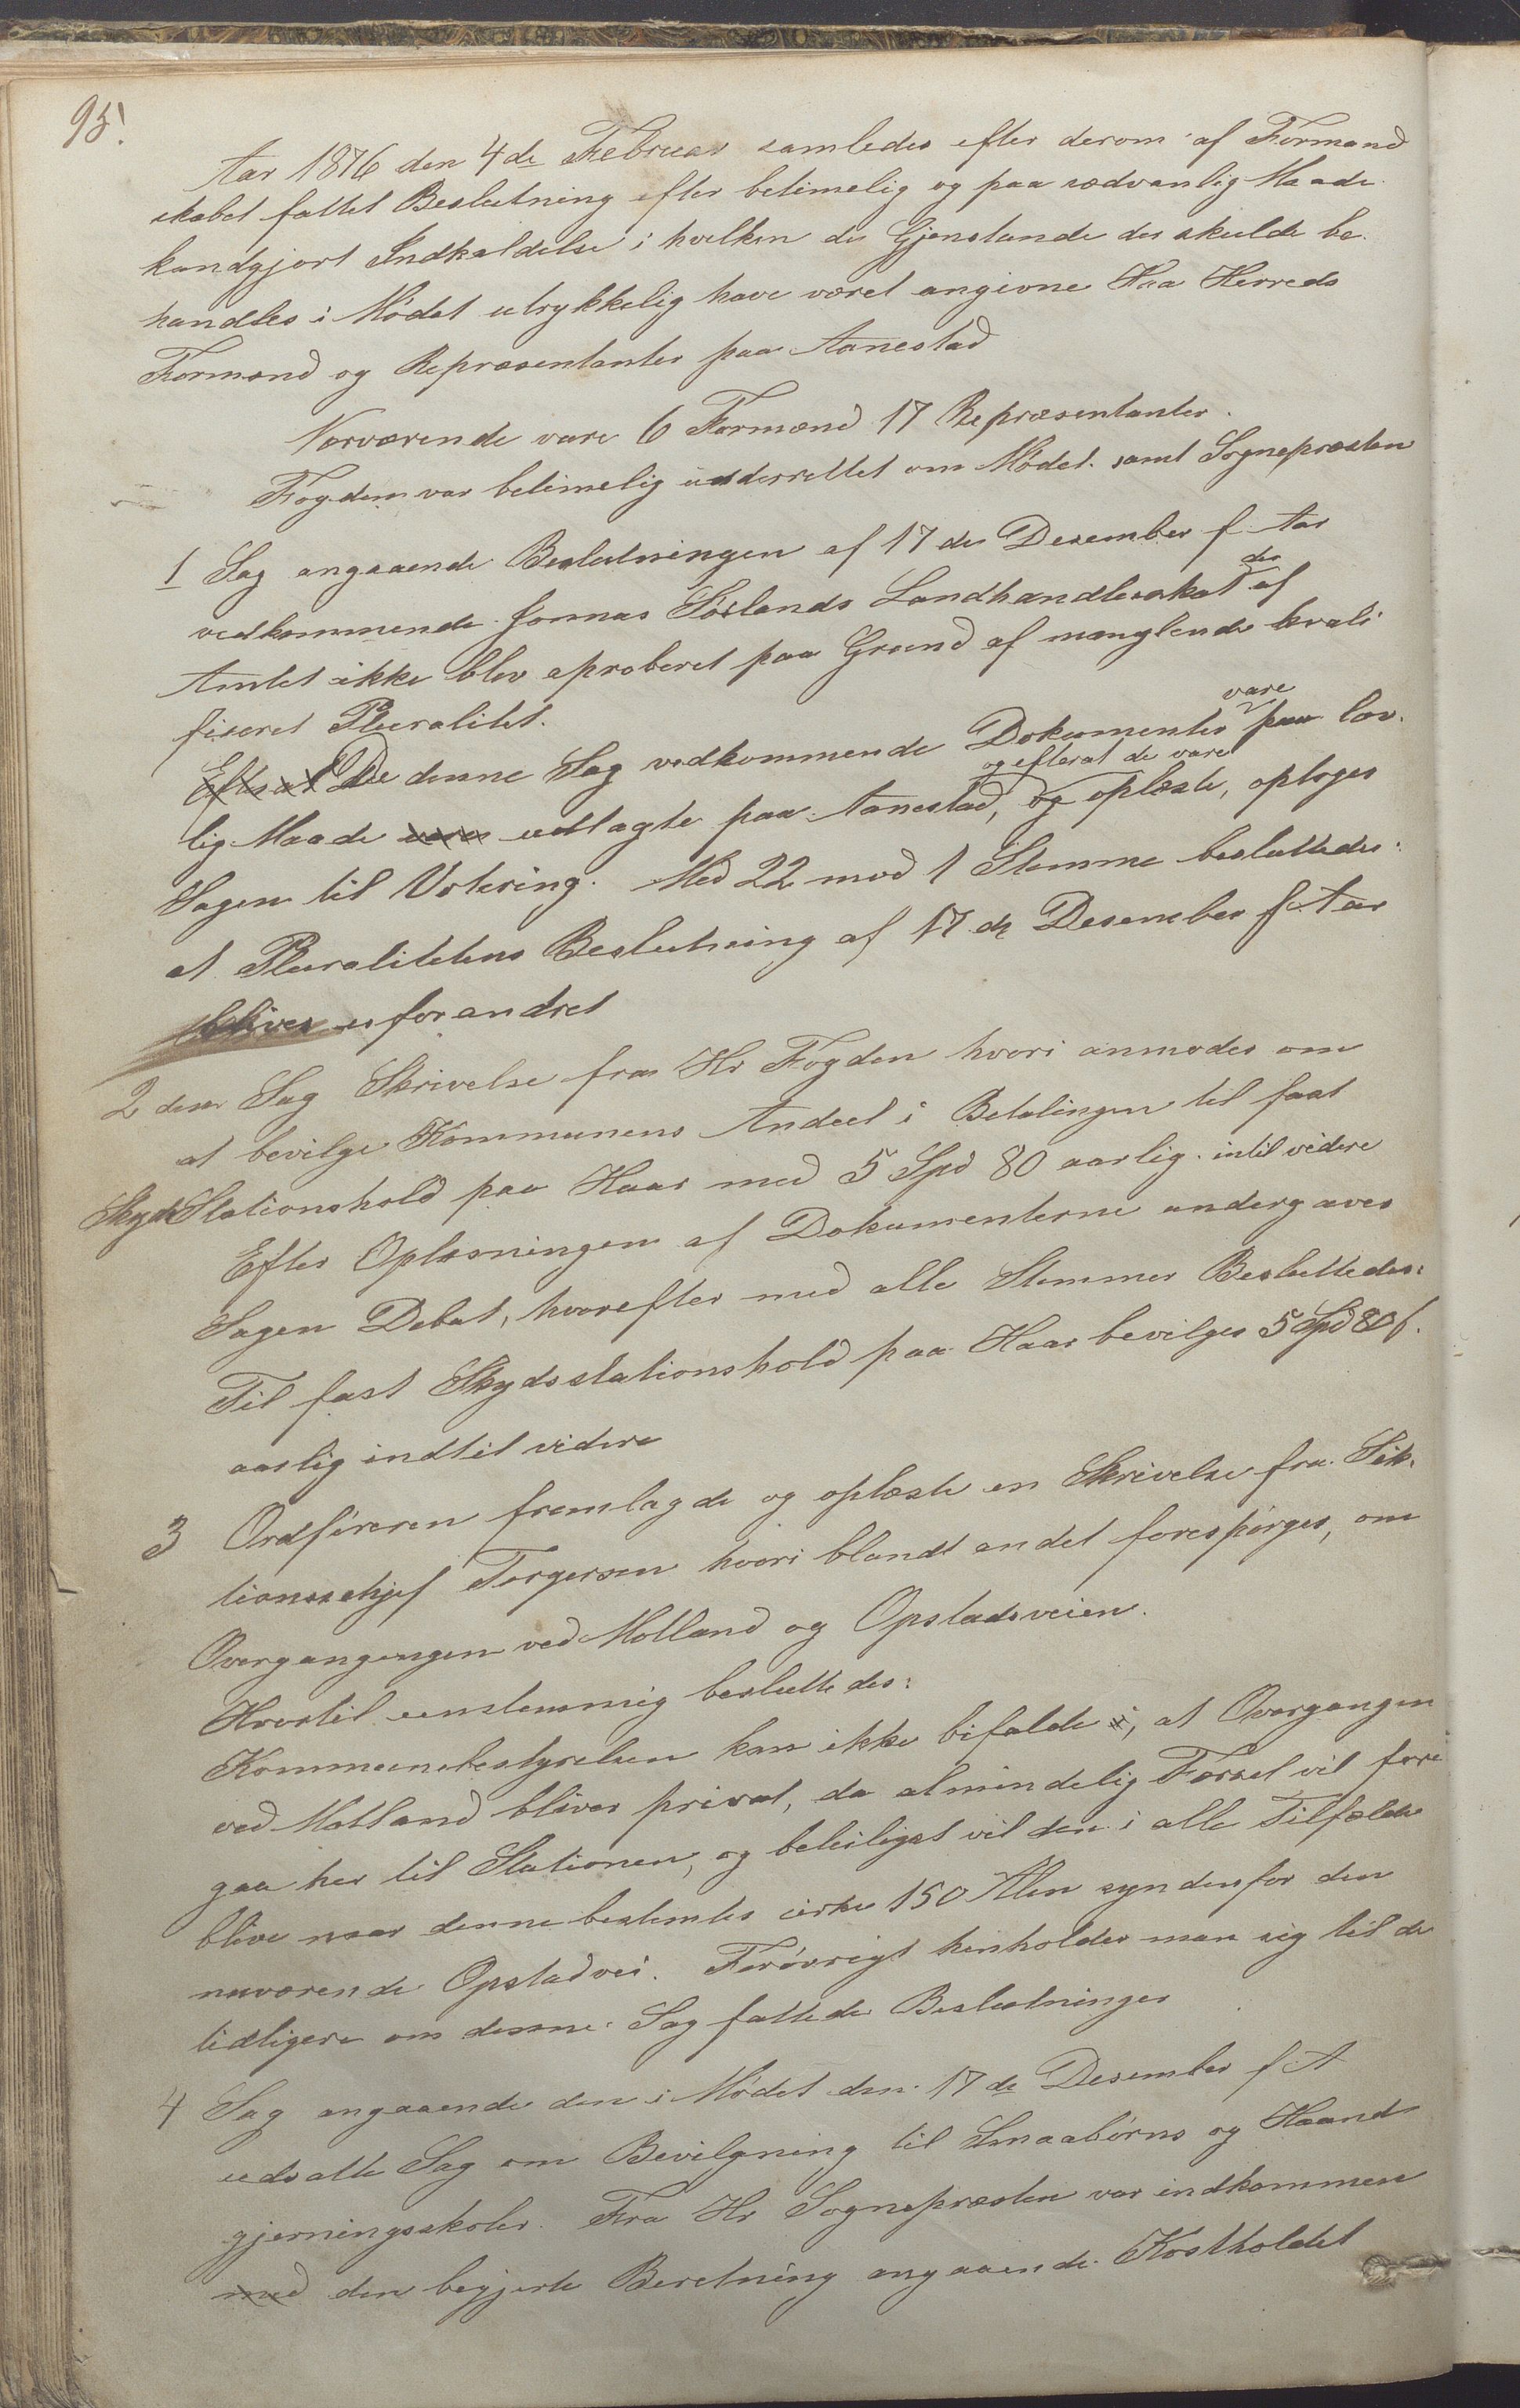 95.
Aar 1876 den 4de Februar samledes efter derom af Formand
skabet fattet Beslutning efter betimelig og paa sædvanlig Maade
kundgjort Indkaldelse i hvilken de Gjenstande der skulde be-
handles i Mødet utrykkelig have været angivne Haa Herreds
Formænd og Repræsentanter paa Aanestad
Nærværende vare 6 Formænd 17 Repræsentanter.
Fogden var betimelig underrettet om Mødet. samt Sognepræsten
1 Sag angaaende Beslutningen af 17de Desember f Aar
vedkommende Jonnas Søilands Landhandlerskat der af
Amtet ikke blev aproberet paa Grund af manglende kvali
fiseret Pluralitet.
Efter at De denne Sag vedkommende Dokumenter vare paa lov-
lig Maade vare udlagte paa Aanestad, og efterat de vare og oplæste, optoges
Sagen til Votering. Med 22 mod 1 Stemme besluttedes:
at Pluralitetens Beslutning af 17de Desember f Aar
bliver uforandret
2den Sag Skrivelse fra Hr Fogden hvori anmodes om
at bevilge Kommunens Andeel i Betalingen til fast
Skyds Stationshold paa Haar med 5 Spd 80 aarlig intil videre
Efter Oplæsningen af Dokumenterne undergaves
Sagen Debat, hvorefter med alle Stemmer Besluttedes:
Til fast Skydsstationshold paa Haar bevilges 5 Spd 80 f.
aarlig indtil videre
3 Ordføreren fremlagde og oplæste en Skrivelse fra Sek-
tionschjef Torgersen hvori blandt andet forespørges, om
Overgangengen ved Motland og Opstadsveien.
Hvortil eenstemmig besluttedes:
Kommunebestyrelsen kan ikke bifalde i, at Overgangen
ved Motland bliver privat, da almindelig Færsel vil fore
gaa her til Stationen, og beleiligst vil den i alle Tilfælde
blive naar denne bestemtes cirka 150 Alen syndenfor den
nuværende Opstadvei. Forøvrigt henholder man sig til de
tidligere om denne Sag fattede Beslutninger
4 Sag angaaende den i Mødet den 17de Desember f A
udsatte Sag om Bevilgning til Smaabørns og Haand
gjerningsskoler. Fra Hr Sognepræsten var indkommen
med den begjerte Beretning angaaende Kostholdet